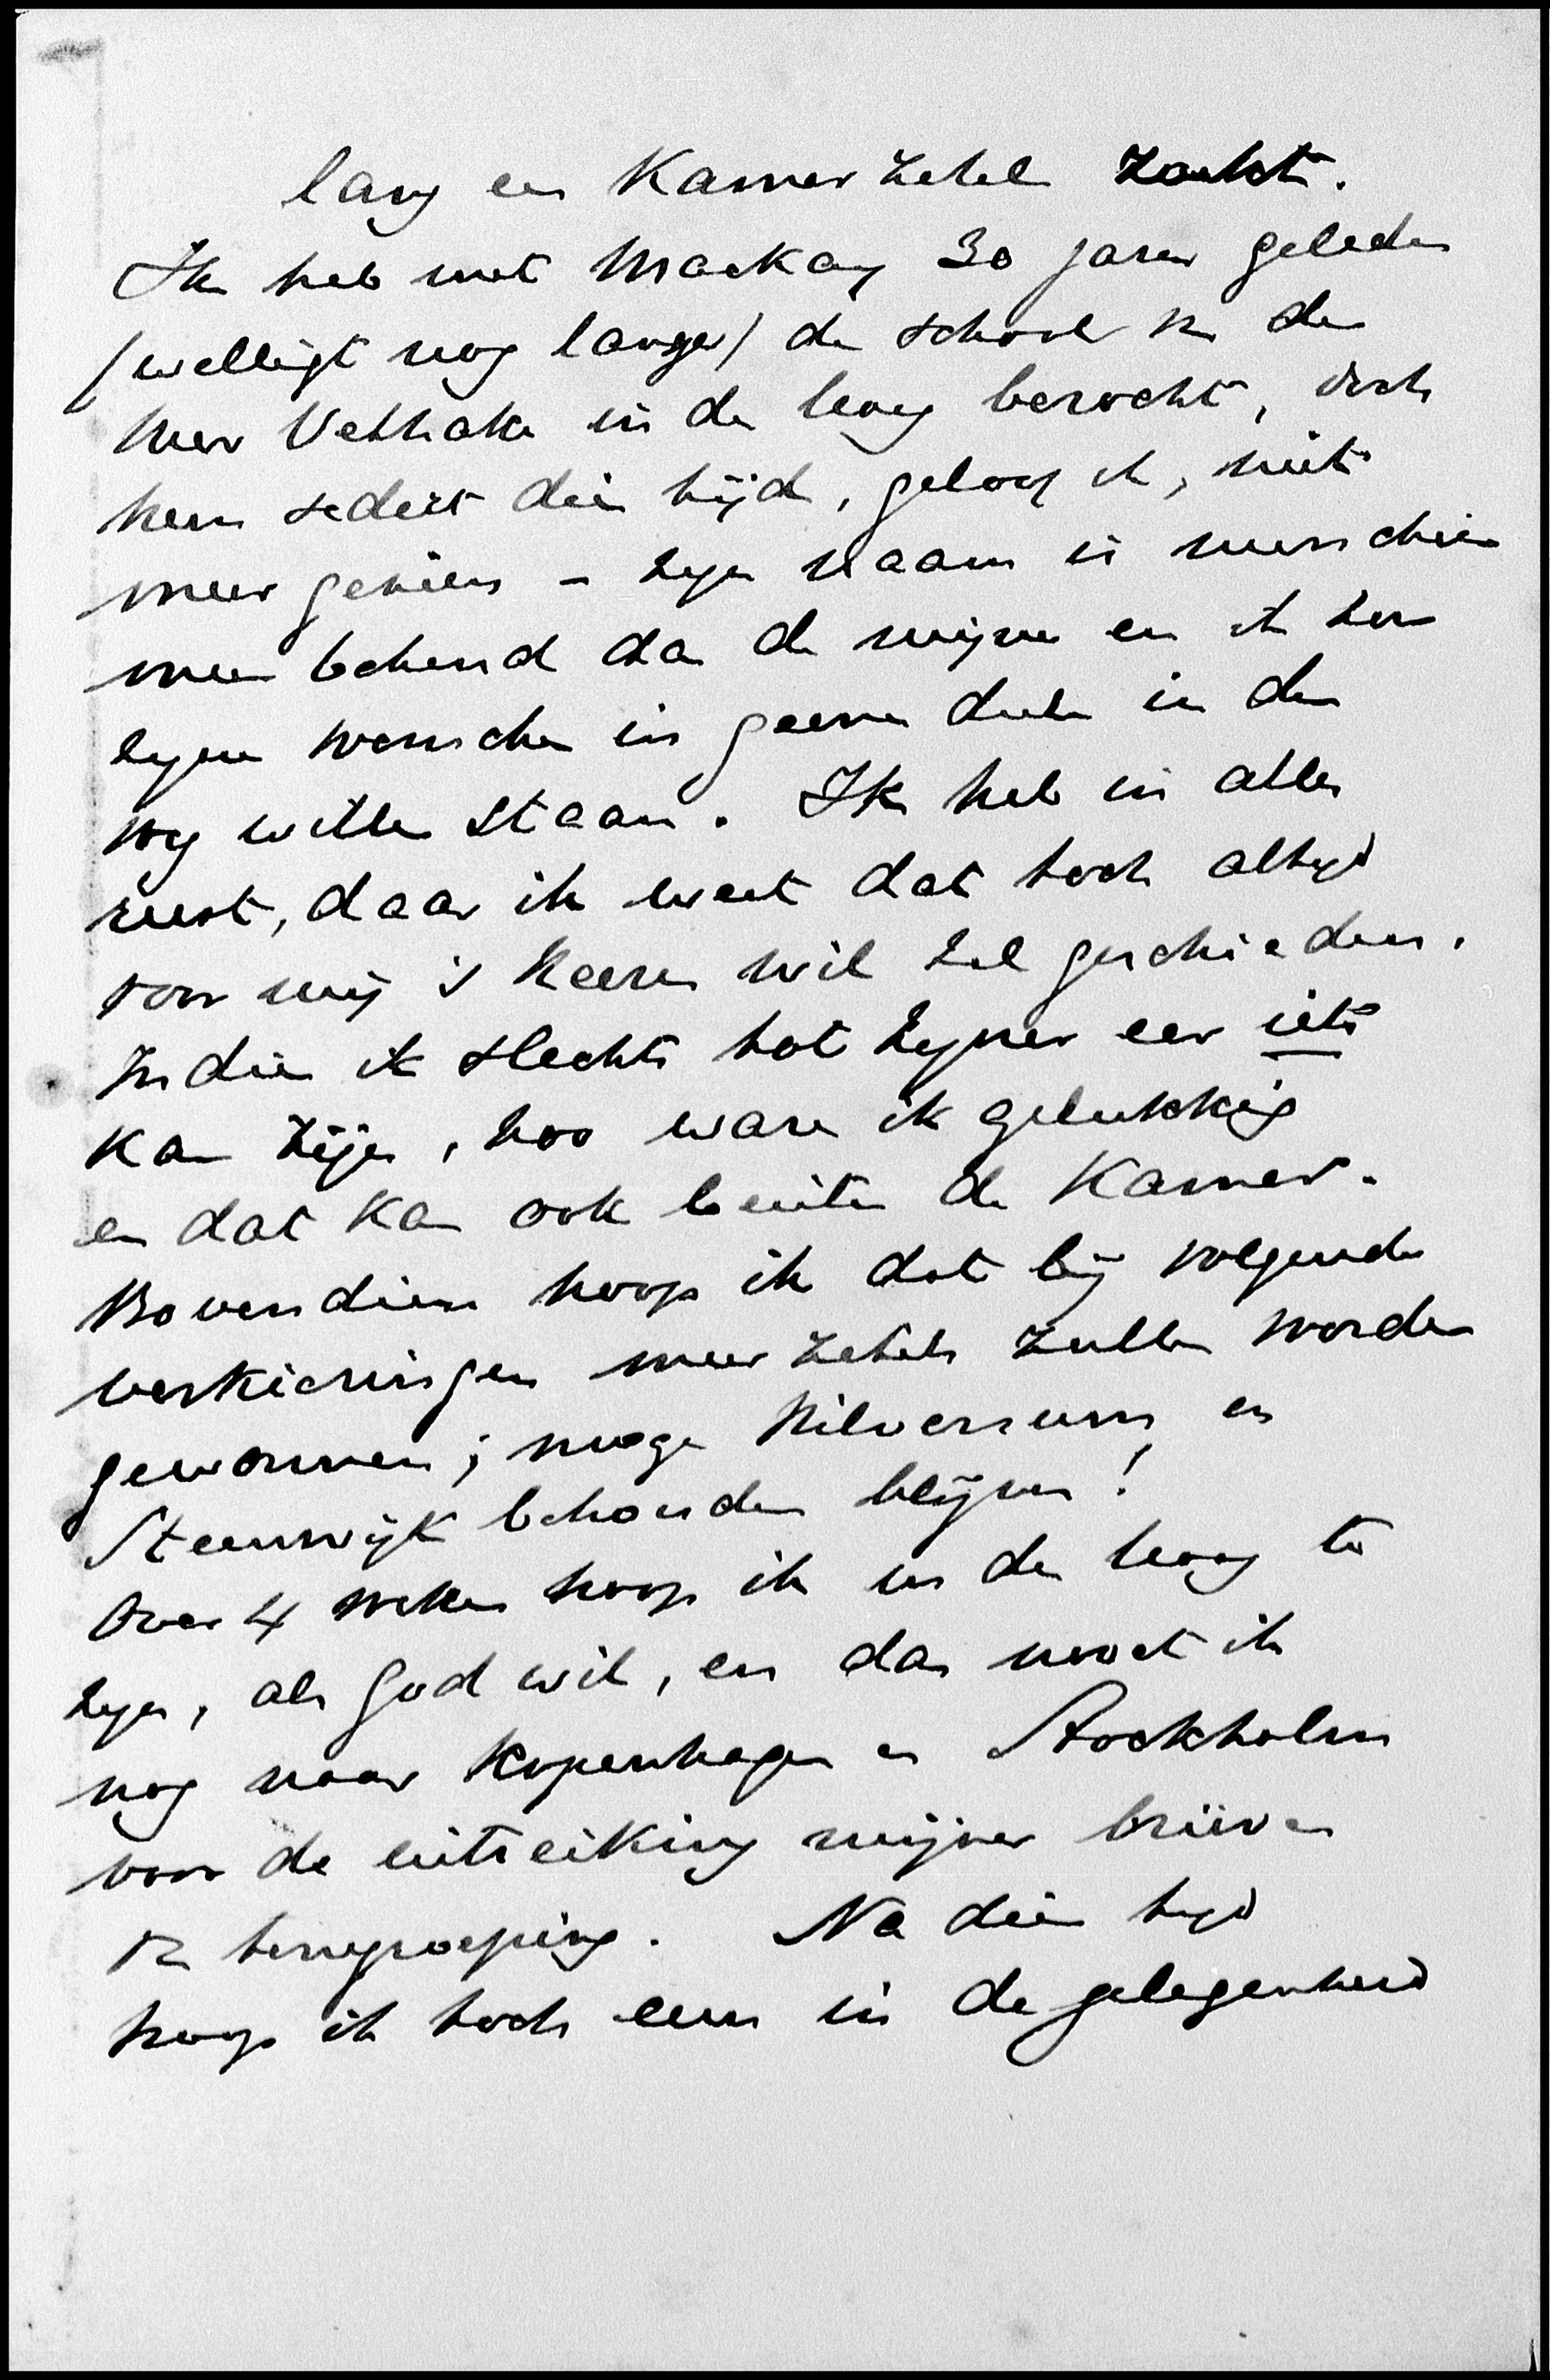 lang een Kamerzetel zoekt.
Ik heb met Mackay 30 jaren geleden
(welligt nog langer) de school van den
heer Vethake in den Haag bezocht, doch
hem sedert dien tijd, geloof ik, niet
meer gezien - zijn naam is misschien
meer bekend dan de mijne en ik zou
zijne wenschen in geenen deele in den
weg willen staan. Ik heb in alles
rust, daar ik weet dat toch altijd
voor mij 's Heeren wil zal geschieden.
Indien ik slechts tot zijner eer iets
kan zijn, hoe ware ik gelukkig
en dat kan ook buiten de Kamer.
Bovendien hoop ik dat bij volgende
verkiezingen meer zetels zullen worden
gewonnen; moge Hilversum en
Steenwijk behouden blijven!
Over 4 weken hoop ik in den Haag te
zijn, als God wil, en dan moet ik
nog naar Kopenhagen en Stockholm
voor de uitreiking mijner brieven
van terugroeping. Na dien tijd
hoop ik toch eens in de gelegenheid